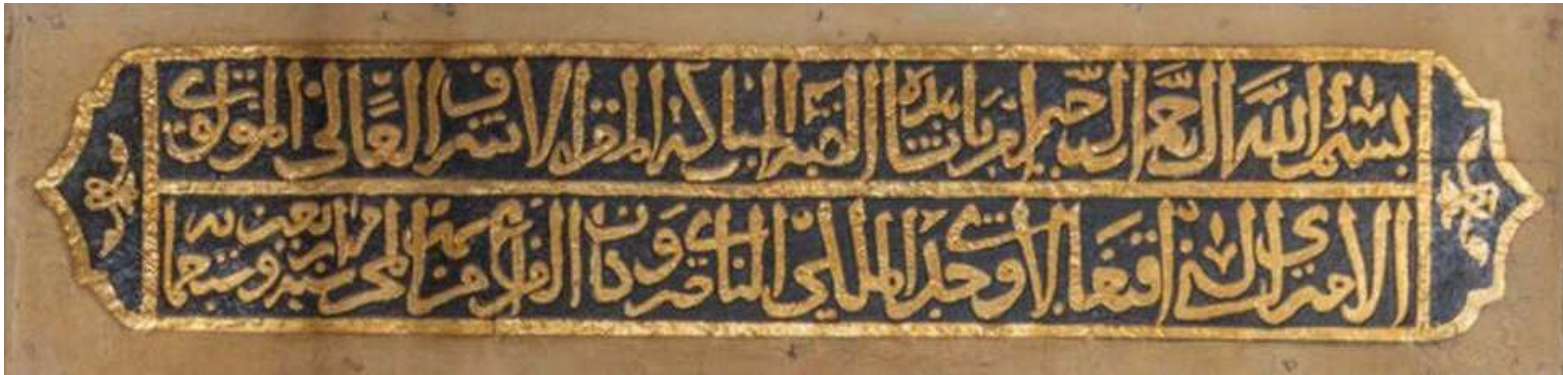 بسم الله الرحمن الرحيم امر بانشا هذه القبة المباركة المقر الاشرف العالي المولوي
الاميري السيفي اقبغا الاوحدي الملكي الناصري وكان الفراغ المحرم سنة اربعين وسبعماية